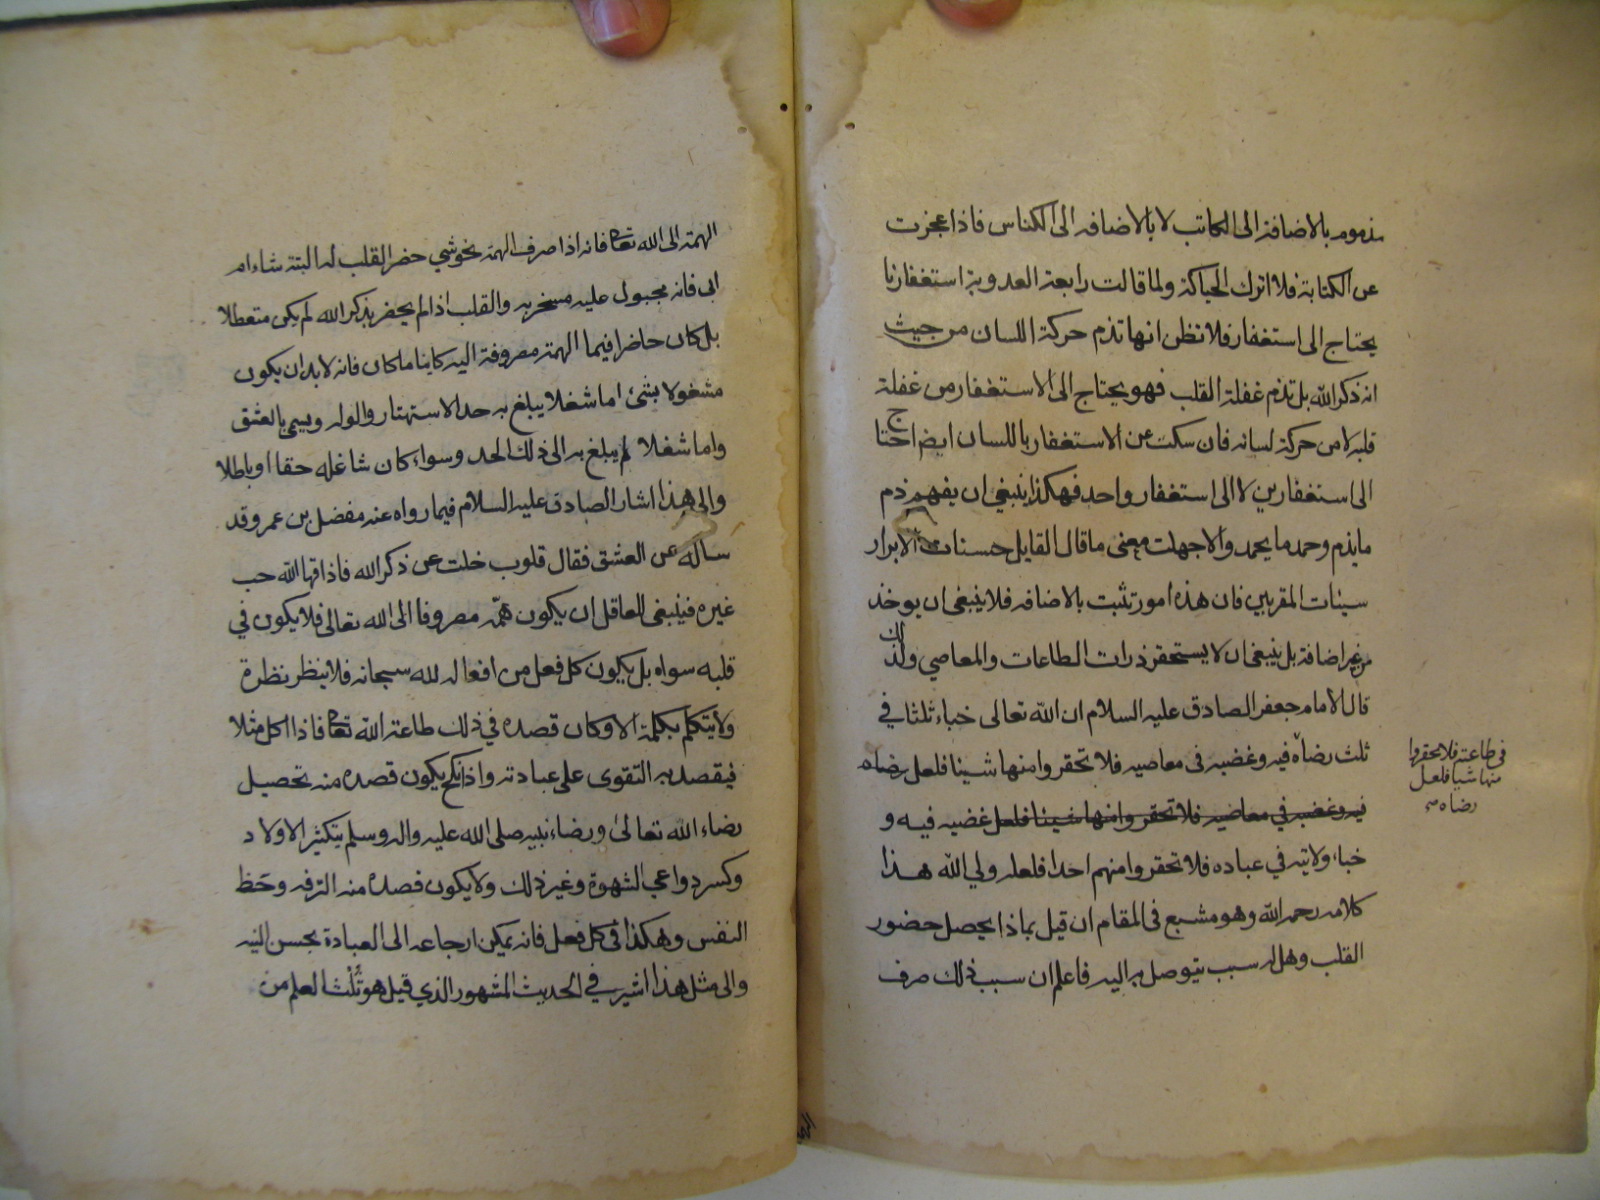 مذموم بالاضافة الى الكاتب لا بالاضافه الى الكناس فاذا عجزت
عن الكتابة فلا اترك الحياكة ولما قالت رابعة العدوية استغفارنا
يحتاج الى استغفار فلا تظن انها تذم حركة اللسان من حيث
انه ذكر الله بل تذم غفلة القلب فهو يحتاج الى الاستغفار من غفلة
قلبه لا من حركة لسانه فان سكت عن الاستغفار باللسان ايضا احتاج
الى استغفارين لا الى استغفار واحد فهكذا ينبغى ان يفهم ذم
ما يذم وحمد ما يحمد والا جهلت معنى ما قال القايل حسنات الابرار
سيئات المقربين فان هذه امور تثبت بالاضافه فلا ينبغى ان يوخذ
من غير اضافة بل ينبغى ان لا يستحقر ذرات الطاعات والمعاصي ولذلك
قال الامام جعفر الصادق عليه السلام ان الله تعالى خباء ثلثا في
ثلث رضاه فيه وغضبه فى معاصيه فلا تحقروا منها شيئا فلعل رضاه
فيه وغضبه في معاصيه فلا تحقروا منها شيئا فلعل غضبه فيه و
خباء ولايته في عباده فلا تحقروا منهم احدا فلعله ولي الله هذا
كلامه رحمه الله وهو مشبع فى المقام ان قيل بماذا يحصل حضور
القلب وهل له سبب يتوصل به اليه فاعلم ان سبب ذلك صرف
فى طاعته فلا تحقروا
منها شيا فلعل
رضاه
الهمة
الهمة الى الله تعالى فانه اذا صرف الهمة نحو شي حضر القلب له البتة شاء ام
ابى فانه مجبول عليه مسخر به والقلب اذا لم يحضر بذكر الله لم يكن متعطلا
بل كان حاضرا فيما الهمة مصروفة اليه كاينا ما كان فانه لا بد ان يكون
مشغولا بشئ اما شغلا يبلغ به حد الاستهتار والوله ويسمى بالعشق
واما شغلا لم يبلغ به الى ذلك الحد وسواء كان شاغله حقا او باطلا
والى هذا اشار الصادق عليه السلام فيما رواه عنه مفضل بن عمر وقد
ساله عن العشق فقال قلوب خلت عن ذكر الله فاذاقها الله حب
غيره فينبغى للعاقل ان يكون همّه مصروفا الى الله تعالى فلا يكون في
قلبه سواه بل يكون كل فعل من افعاله لله سبحانه فلا ينظر نظرة
ولا يتكلم بكلمة الا وكان قصده في ذلك طاعة الله تعالى فاذا اكل مثلا
فيقصد به التقوى على عبادته واذا نكح يكون قصده منه تحصيل
رضاء الله تعالى ورضاء نبيه صلى الله عليه واله وسلم بتكثير الاولاد
وكسر دواعي الشهوة وغير ذلك ولا يكون قصده منه الترفه وحَظ
النفس وهكذا فى كل فعل فانه يمكن ارجاعه الى العبادة بحسن النيه
والى مثل هذا اشير في الحديث المشهور الذي قيل هو ثُلْث العلم من